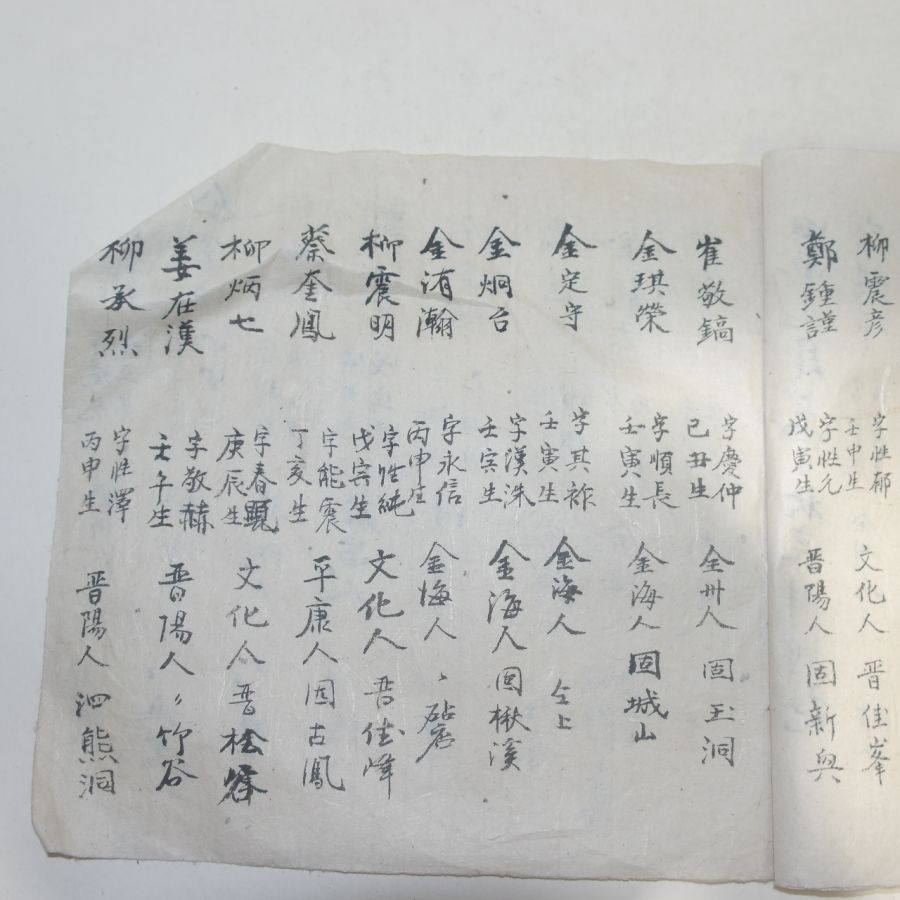 柳震彦 字性郁 壬申生 文化人 晋佳峯
鄭鍾謹 字性允 戊寅生 晋陽人 固新與
崔敬鎬 字慶仲 己丑生 全州人 固玉洞
金琪榮 字順長 壬寅生 金海人 固城山
金定守 字其祚 壬寅生 金海人 仝上
金炯台 字漢洙 壬寅生 金海人 固楸溪
金洧瀚 字永信 丙申生 金海人
柳震明 字性純 戊寅生 文化人 晋佳峰
蔡奎鳳 字能震 丁亥生 平康人 固古鳳
柳炳七 字春顯 庚辰生 文化人 晋桧
姜在漢 字敬赫 壬午生 晋陽人 〃竹谷
柳承烈 字性澤 丙申生 晋陽人 泗熊洞